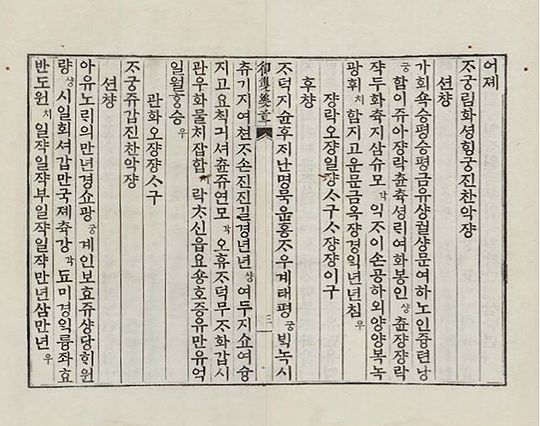 어졔
ᄌᆞ궁림화셩ᄒᆡᆼ궁진찬악쟝
션챵
가회욕승평승평금유샹궐샹문여하노인즁련낭
궁 함이쥬아쟝락츈츅셩리여화봉인 샹 츈쟝쟝락
쟉두화츅지삼슈모 각 익ᄌᆞ이손공하외양양복녹
광휘 치 합지고운문금옥쟝경익년년침 우
쟝락오쟝일쟝ᄉᆞ구ᄉᆞ쟝쟝이구
후챵
ᄌᆞ덕지윤후지난명복윤홍ᄌᆞ우계태평 궁 빅녹시
御製樂章 三
츄기지여쳔ᄌᆞ손진진길경년년 샹 여두지쇼여슝
지고요쳑긔셔츈쥬연모 각 오휴ᄌᆞ덕무ᄌᆞ화갑시
관우화물치잡합 락ᄎᆞ신읍요숑호증유만유억
일월ᄒᆞᆼ승 우
관화오쟝쟝ᄉᆞ구
ᄌᆞ궁쥬갑진찬악쟝
션챵
아유노릐의만년경쇼광 궁 계인보효쥬샹당ᄒᆡ원
량 샹 시일회셔갑만국졔츅강 각 됴미경익륭좌효
반도원 치 일쟉일쟉부일쟉일쟉만년삼만년 우